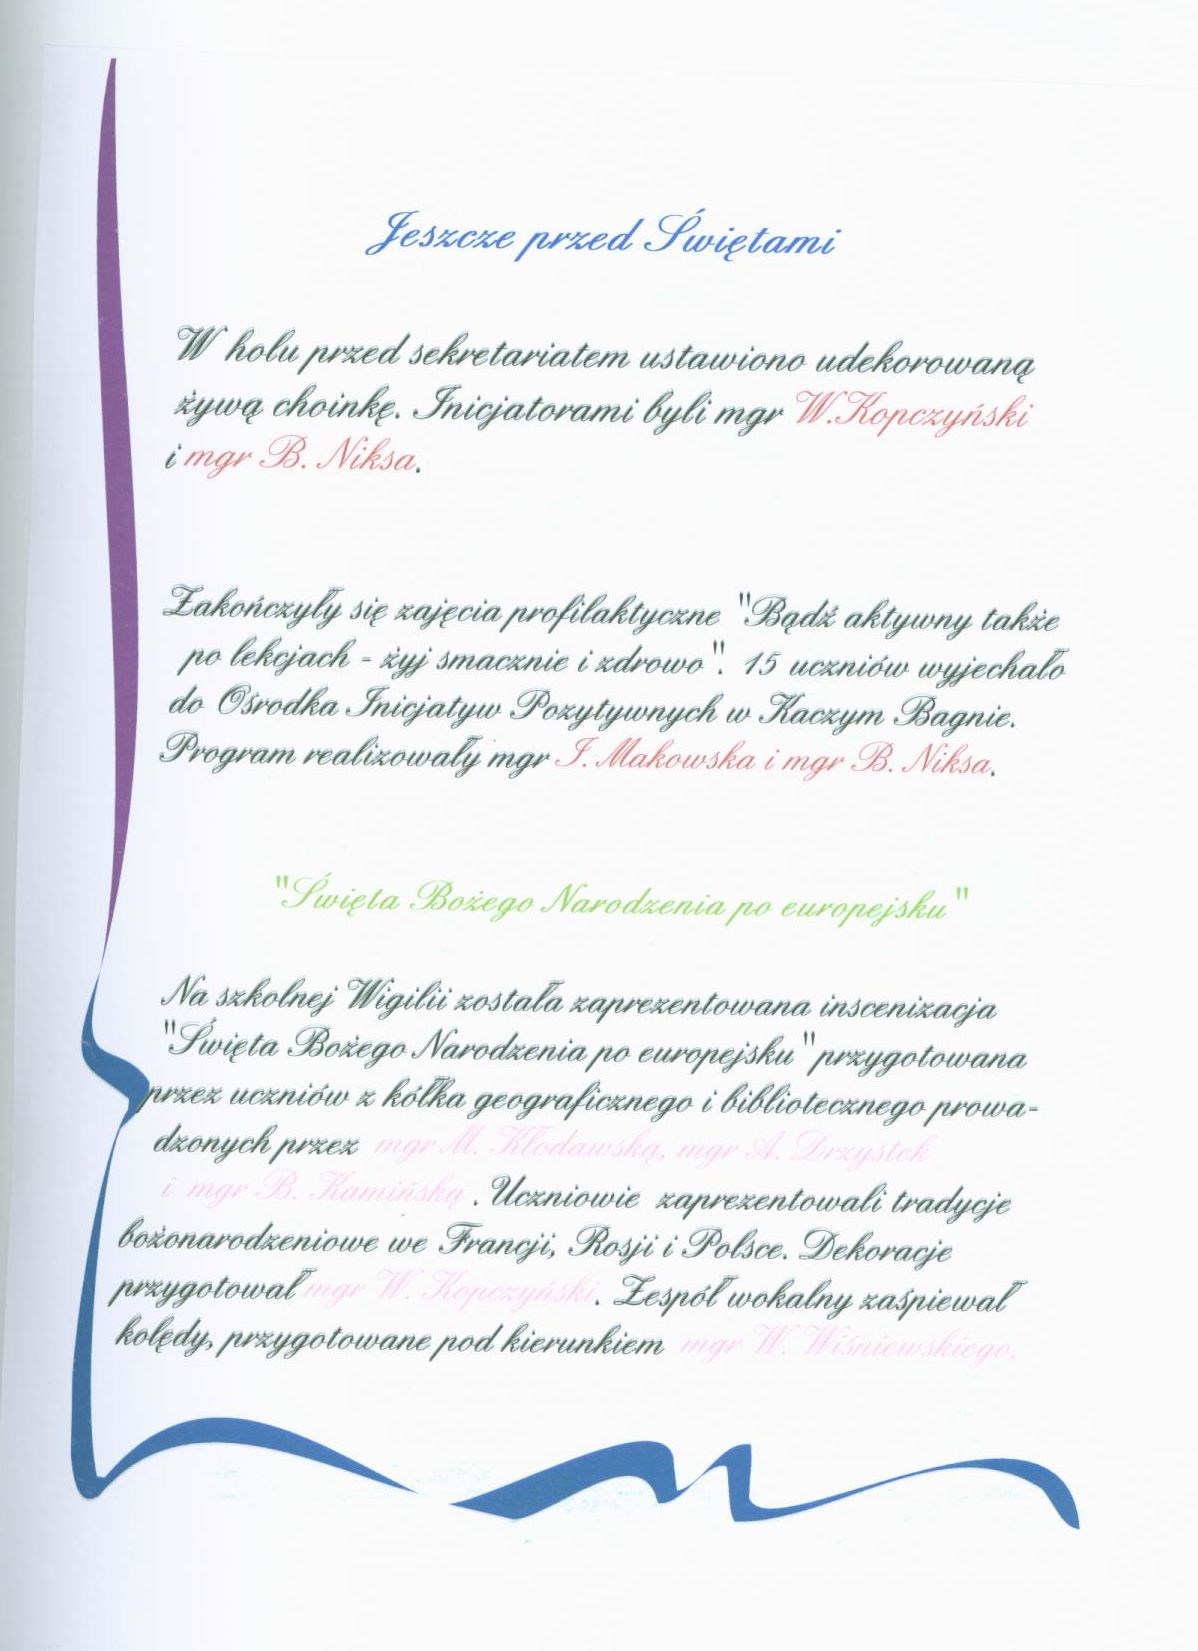 Jeszcze przed Świętami
W holu przed sekretariatem ustawiono udekorowaną
żywą choinkę. Inicjatorami byli mgr W.Kopczyński
i mgr B. Niksa.
Zakończyły się zajęcia profilaktyczne "Bądź aktywny także
po lekcjach - żyj smacznie i zdrowo". 15 uczniów wyjechało
do Ośrodka Inicjatyw Pozytywnych w Kaczym Bagnie.
Program realizowały mgr I. Makowska i mgr B. Niksa.
"Święta Bożego Narodzenia po europejsku"
Na szkolnej Wigilii została zaprezentowana inscenizacja
"Święta Bożego Narodzenia po europejsku" przygotowana
przez uczniów z kółka geograficznego i bibliotecznego prowa-
dzonych przez mgr M. Kłodawską, mgr A. Drzystek
i mgr B. Kamińską . Uczniowie zaprezentowali tradycje
bożonarodzeniowe we Francji, Rosji i Polsce. Dekoracje
przygotował mgr W. Kopczyński. Zespół wokalny zaśpiewał
kolędy, przygotowane pod kierunkiem mgr W. Wiśniewskiego.